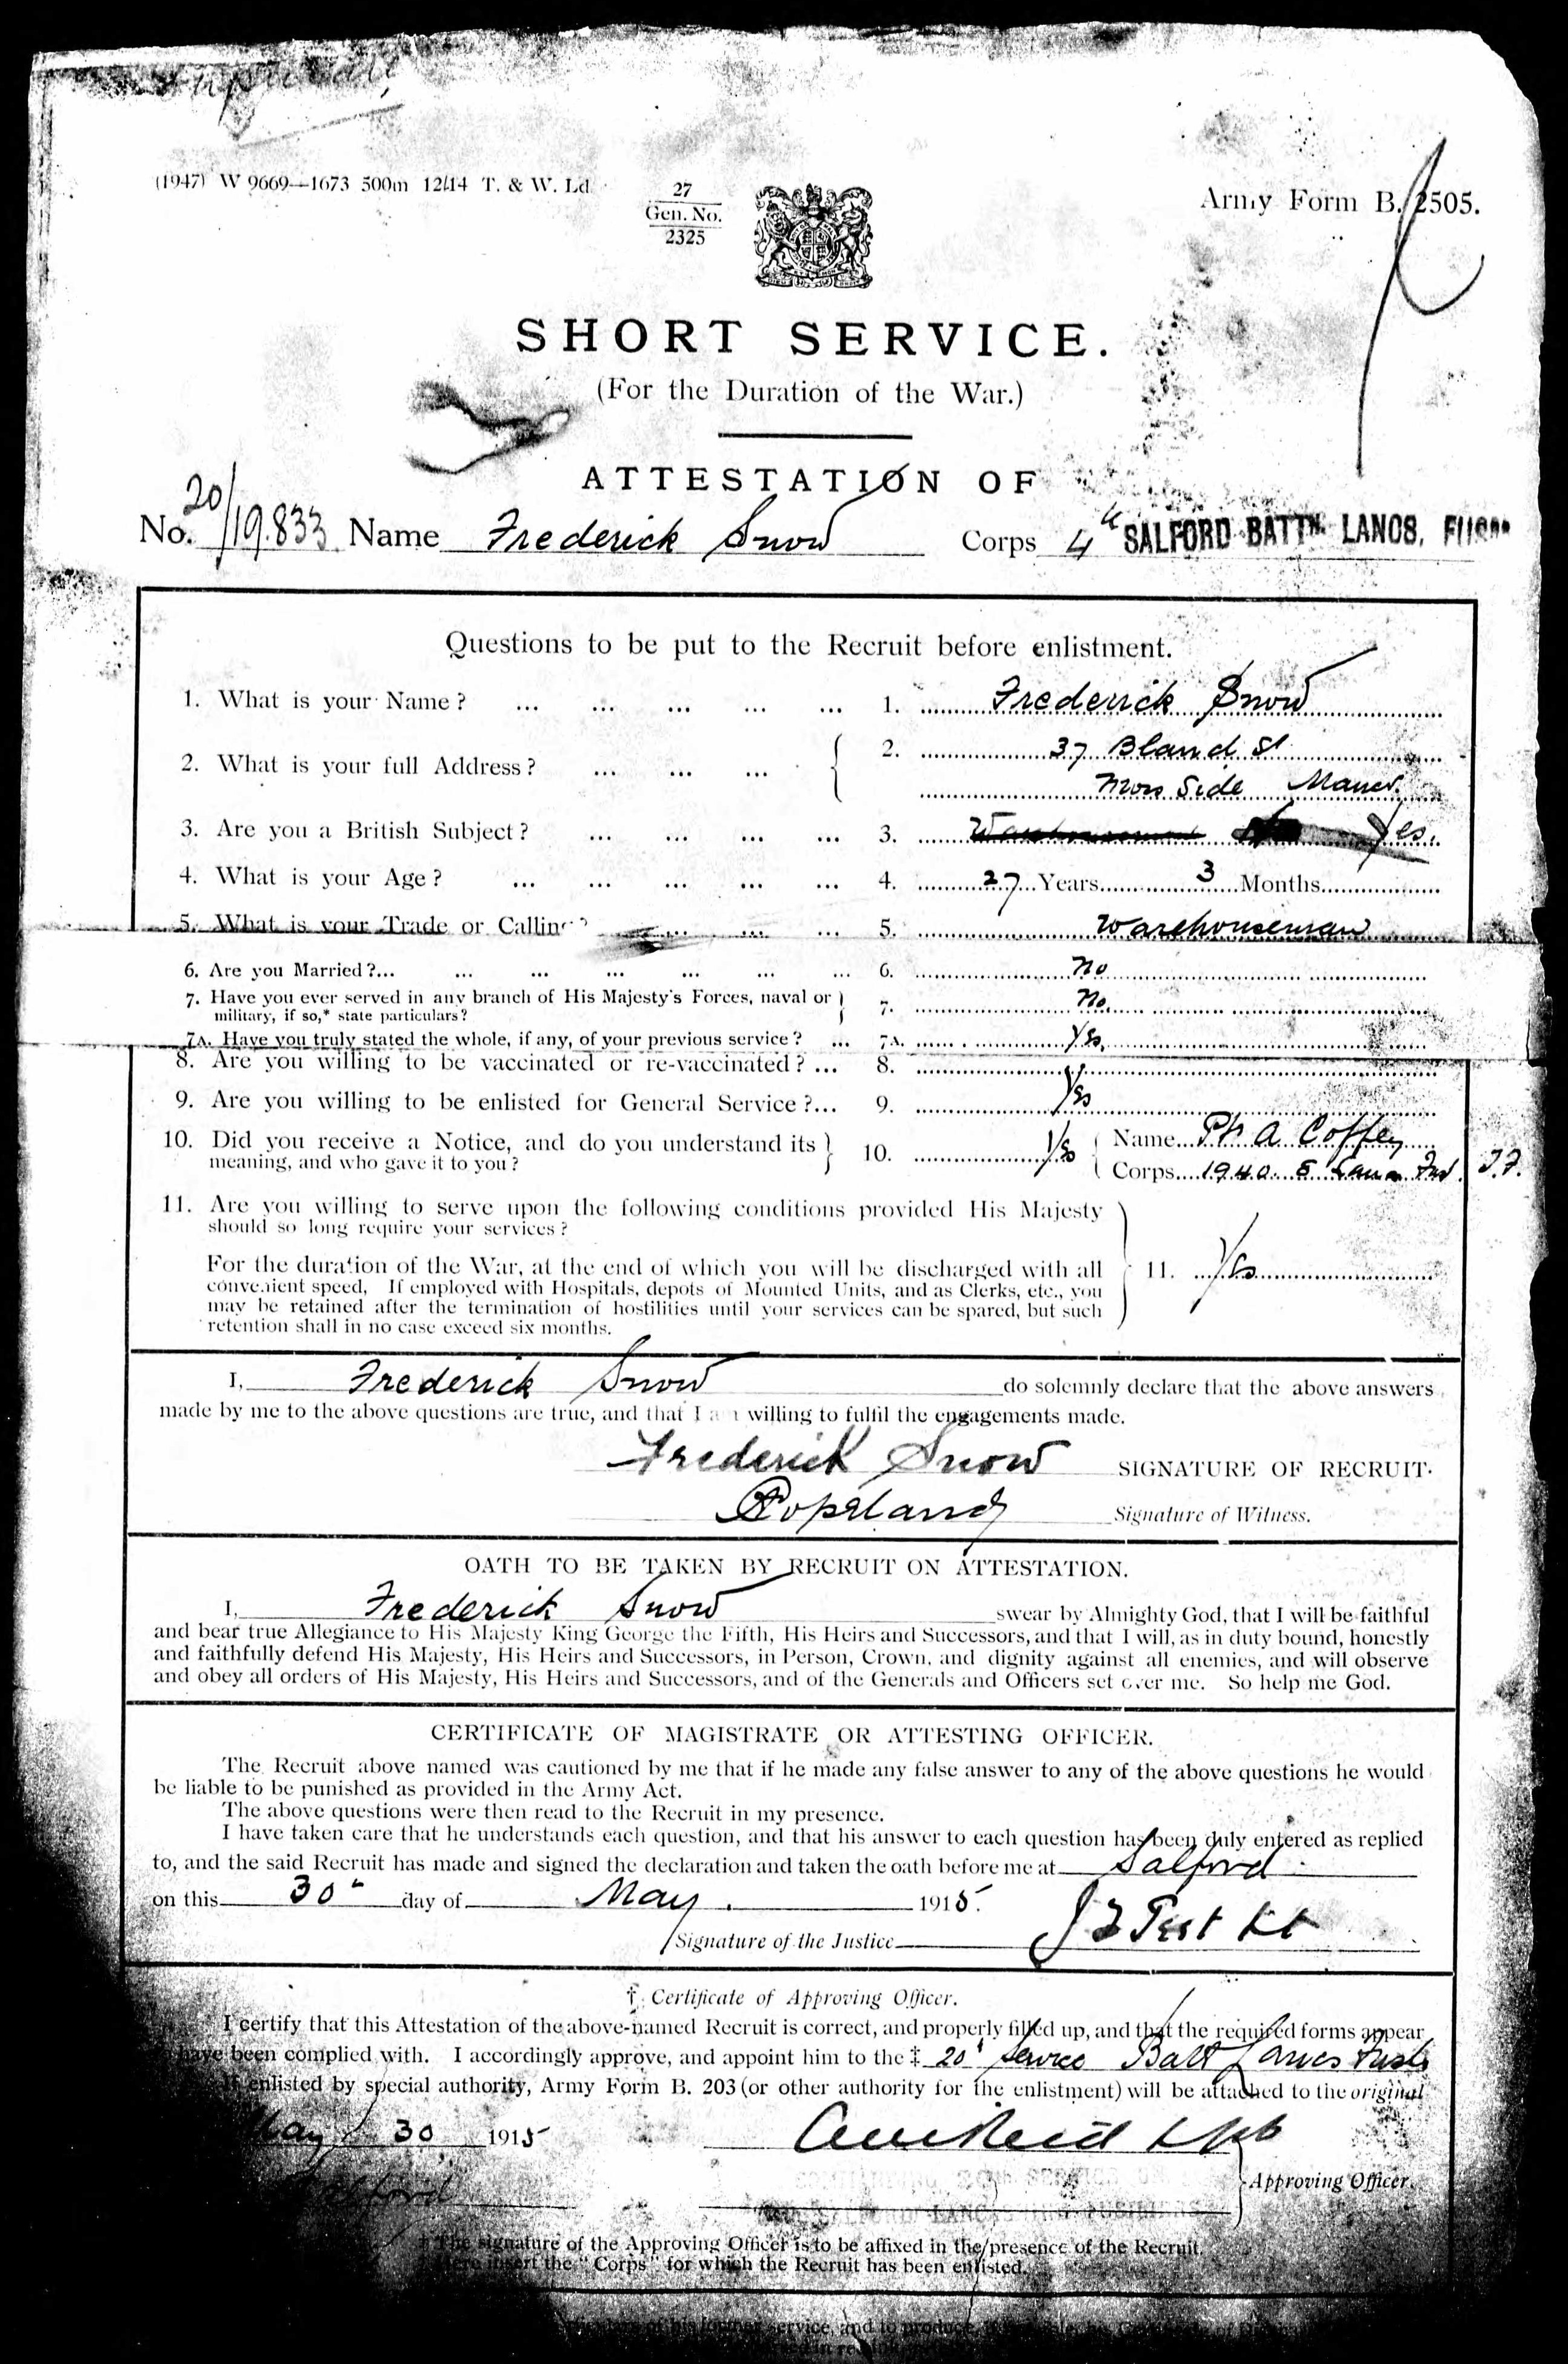 (1947) W 9669—1673 500m 12/14 T. & W. Ld.
27
Gen. No.
2325
Army Form B. 2505.
SHORT SERVICE.
(For the Duration of the War.)
ATTESTATION OF
No. 20/19.833 Name Frederick Snow Corps 4th SALFORD BATTN. LANCS. FUS
Questions to be put to the Recruit before enlistment.
1. What is your Name? ... ... ... ... ... 1. Frederick Snow
2. What is your full Address? ... ... ... 2. 37 Bland St
Moss Side Mancr.
3. Are you a British Subject? ... ... ... ... 3. Warehouseman Yes.
4. What is your Age? ... ... ... ... ... 4. 27 Years 3 Months
5. What is your Trade or Calling? ... ... ... 5. Warehouseman
6. Are you Married?... ... ... ... ... ... ... 6. No
7. Have you ever served in any branch of His Majesty's Forces, naval or 7. No.
military, if so,* state particulars?
7A. Have you truly stated the whole, if any, of your previous service? ... 7A. Yes.
8. Are you willing to be vaccinated or re-vaccinated? ... 8.
9. Are you willing to be enlisted for General Service?... 9. Yes
10. Did you receive a Notice, and do you understand its 10. Yes Name A Coffey
meaning, and who gave it to you? Corps 1940 Lan Fus. T.F.
11. Are you willing to serve upon the following conditions provided His Majesty
should so long require your services?
For the duration of the War, at the end of which you will be discharged with all 11. Yes
convenient speed, If employed with Hospitals, depots of Mounted Units, and as Clerks, etc., you
may be retained after the termination of hostilities until your services can be spared, but such
retention shall in no case exceed six months.
I, Frederick Snow do solemnly declare that the above answers
made by me to the above questions are true, and that I am willing to fulfil the engagements made.
Frederick Snow SIGNATURE OF RECRUIT.
Copeland Signature of Witness.
OATH TO BE TAKEN BY RECRUIT ON ATTESTATION.
I, Frederick Snow swear by Almighty God, that I will be faithful
and bear true Allegiance to His Majesty King George the Fifth, His Heirs and Successors, and that I will, as in duty bound, honestly
and faithfully defend His Majesty, His Heirs and Successors, in Person, Crown, and dignity against all enemies, and will observe
and obey all orders of His Majesty, His Heirs and Successors, and of the Generals and Officers set over me. So help me God.
CERTIFICATE OF MAGISTRATE OR ATTESTING OFFICER.
The Recruit above named was cautioned by me that if he made any false answer to any of the above questions he would
be liable to be punished as provided in the Army Act.
The above questions were then read to the Recruit in my presence.
I have taken care that he understands each question, and that his answer to each question has been duly entered as replied
to, and the said Recruit has made and signed the declaration and taken the oath before me at Salford
on this 30th day of May 1915.
Signature of the Justice
† Certificate of Approving Officer.
I certify that this Attestation of the above-named Recruit is correct, and properly filled up, and that the required forms appear
have been complied with. I accordingly approve, and appoint him to the ‡ 20th Service Batt Lancs Fusls
If enlisted by special authority, Army Form B. 203 (or other authority for the enlistment) will be attached to the original
May 30 1915
Salford Approving Officer.
† The signature of the Approving Officer is to be affixed in the presence of the Recruit.
Here insert the "Corps" for which the Recruit has been enlisted.
service, and to produce,